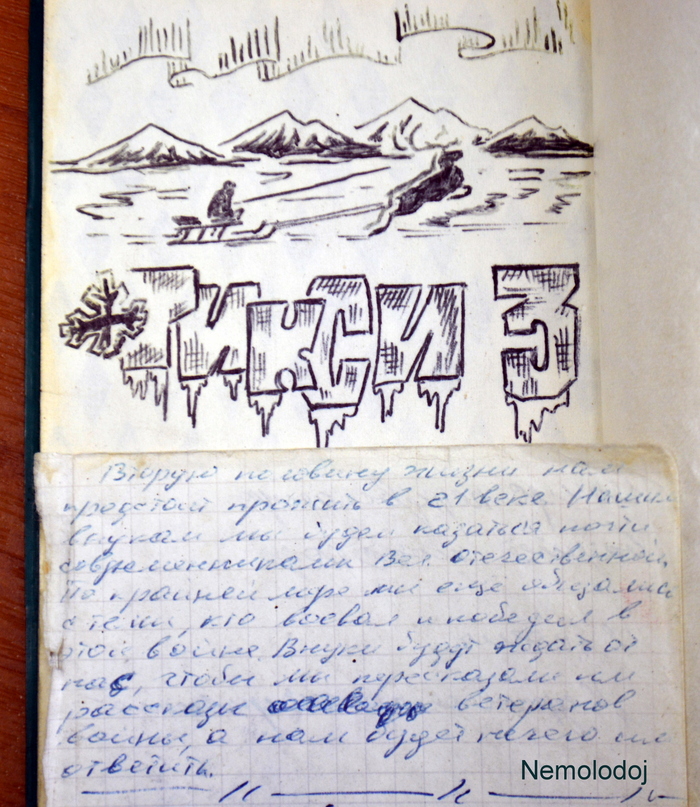 ТИКСИ 3
Вторую половину жизни нам
предстоит прожить в 21 веке. Нашим
внукам мы будем казаться почти
современниками Вел. отечественной.
По крайней мере мы еще общались
с теми, кто воевал и победил в
этой войне. Внуки будут ждать от
нас, чтобы мы пересказали им
рассказы ветеранов
войны, а нам будет нечего им
ответить.
Nemolodoj